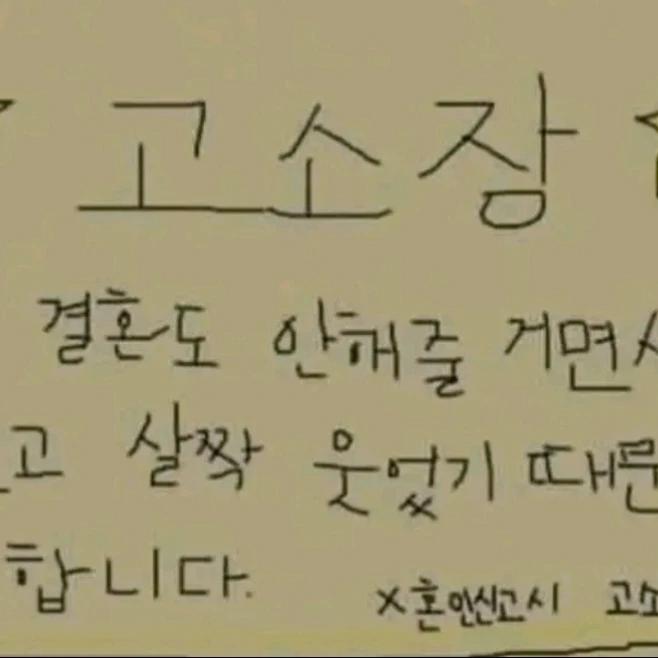 고소장
결혼도 안해줄 거면서
고 살짝 웃었기 때문
합니다.
X혼인신고시 고소